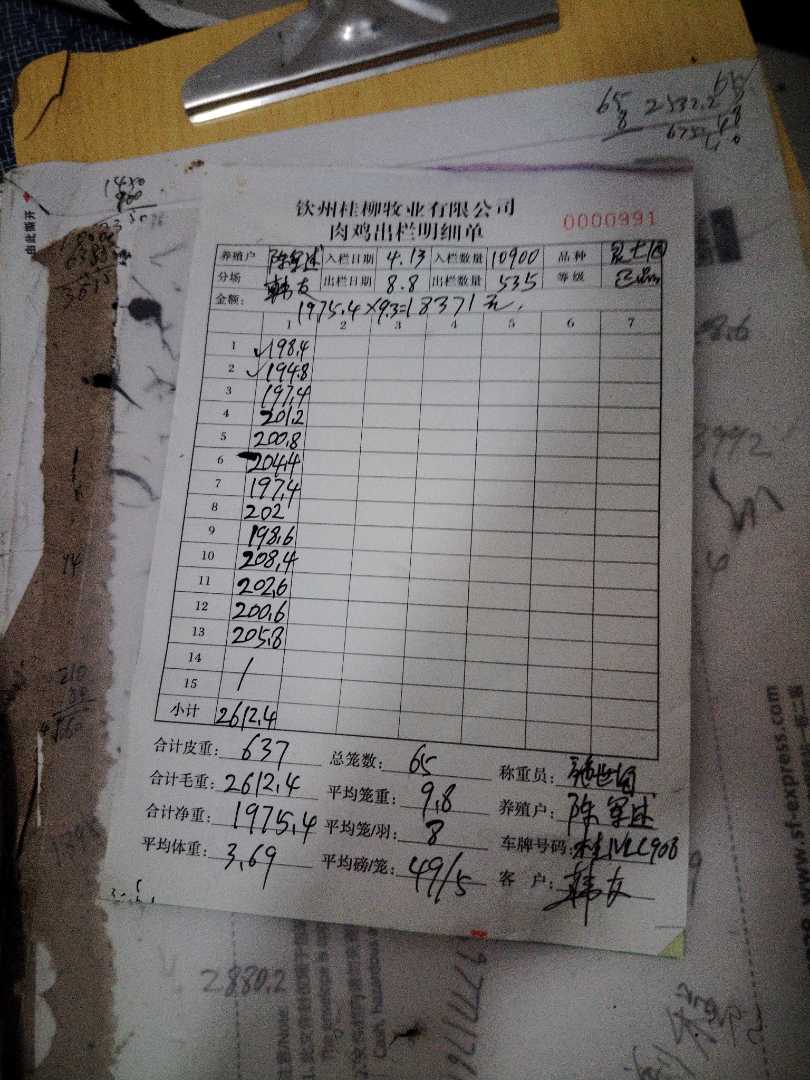 65 2532.2
8
钦州桂柳牧业有限公司
肉鸡出栏明细单
0000991
养殖户 陈军述 入栏日期 4.13 入栏数量 10900 品种
分场 韩友 出栏日期 8.8 出栏数量 535 等级
金额: 1975.4×9.3=18371元.
1 2 3 4 5 6 7
1 ✓198.4
2 ✓194.8
3 197.4
4 201.2
5 200.8
6 204.4
7 197.4
8 202
9 198.6
10 208.4
11 202.6
12 200.6
13 205.8
14 /
15
小计 2612.4
合计皮重: 637 总笼数: 65 称重员:
合计毛重: 2612.4 平均笼重: 9.8 养殖户: 陈军述
合计净重: 1975.4 平均笼/羽: 8 车牌号码:
平均体重: 3.69 平均磅/笼: 49/5 客 户: 韩友
由此撕开
2880.2
www.sf-express.com